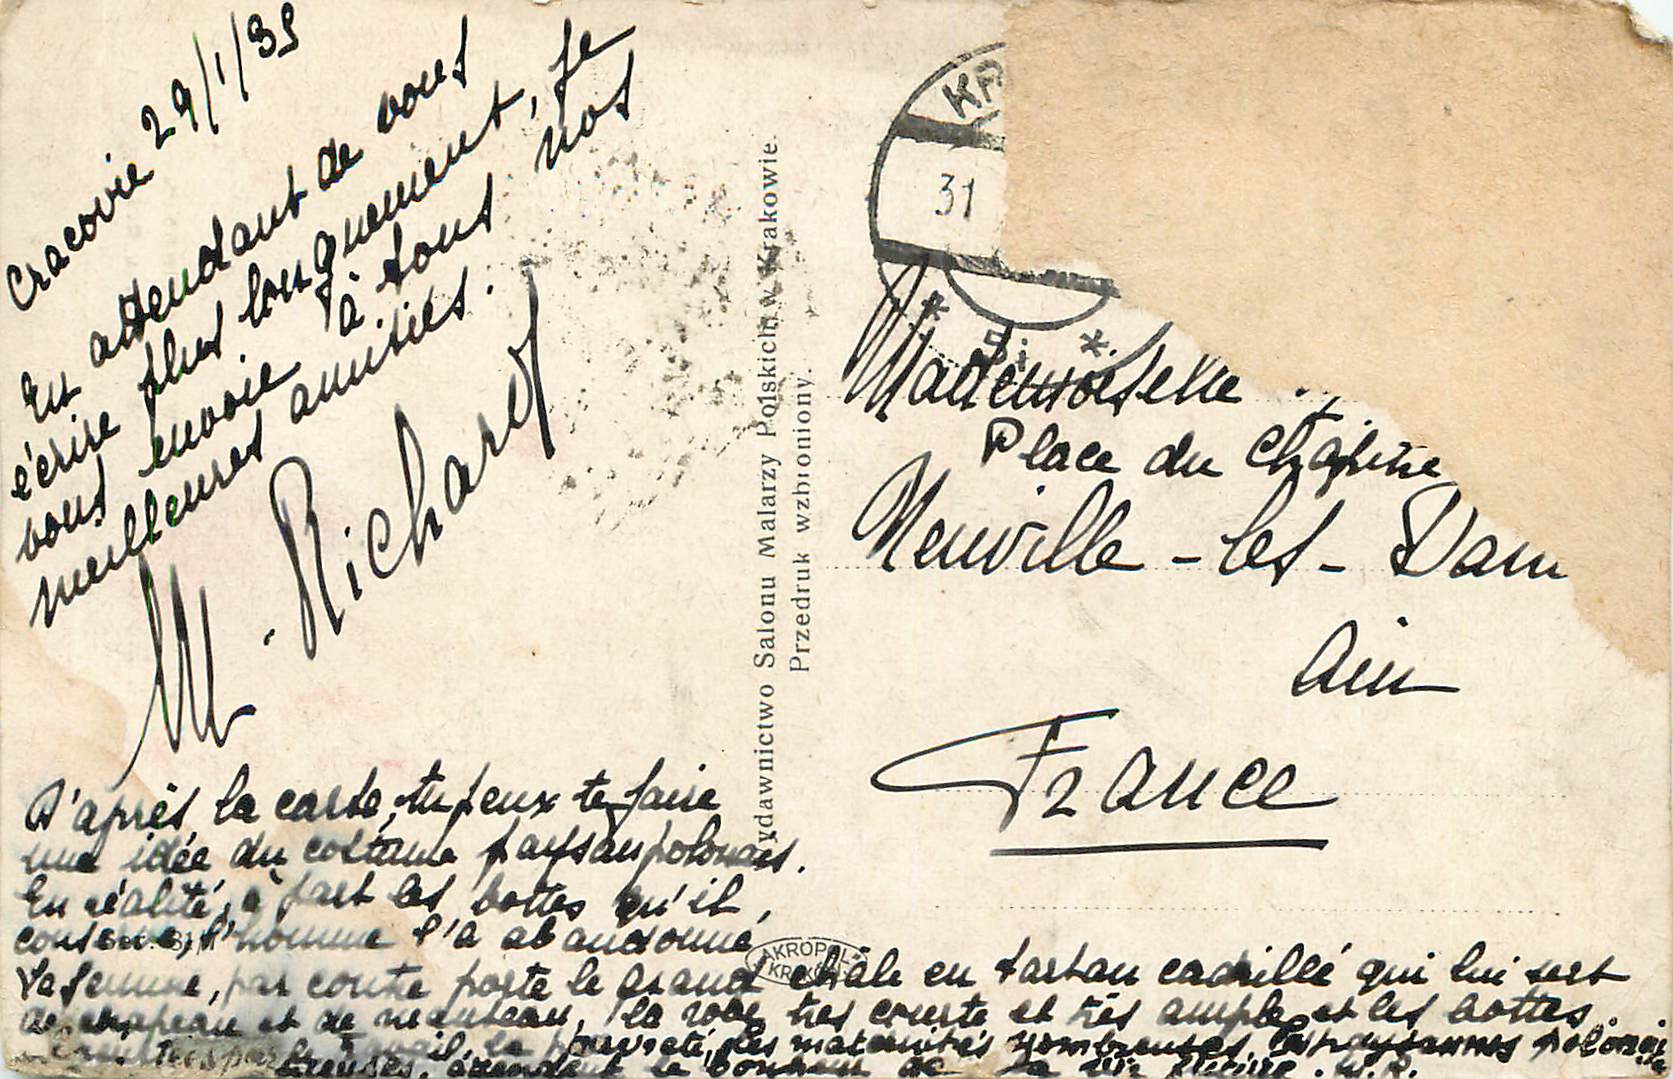 Cracovie 29/1/39
En attendant de vous
écrire plus longuement, je
vous envoie à tous nos
meilleures amitiés.
M. Richard
D'après la carte, tu peux te faire
une idée du costume paysan polonais.
En réalité, à part les bottes qu'il
conserve, l'homme l'a abandonné
La femme, par contre porte le grand châle en tartan cadrillé qui lui sert
de chapeau et de manteau, la robe très courte et très ample et les bottes.
par le travail, la pauvreté, les maternités nombreuses, les paysannes polonai
le bonheur de la vie M.R.
Wydawnictwo Salonu Malarzy Polskich w Krakowie.
Przedruk wzbroniony.
AKROPOL
KRAKÓW
KR
31
Mademoiselle
Place du Chapitre
Neuville-les-Dam
Ain
France